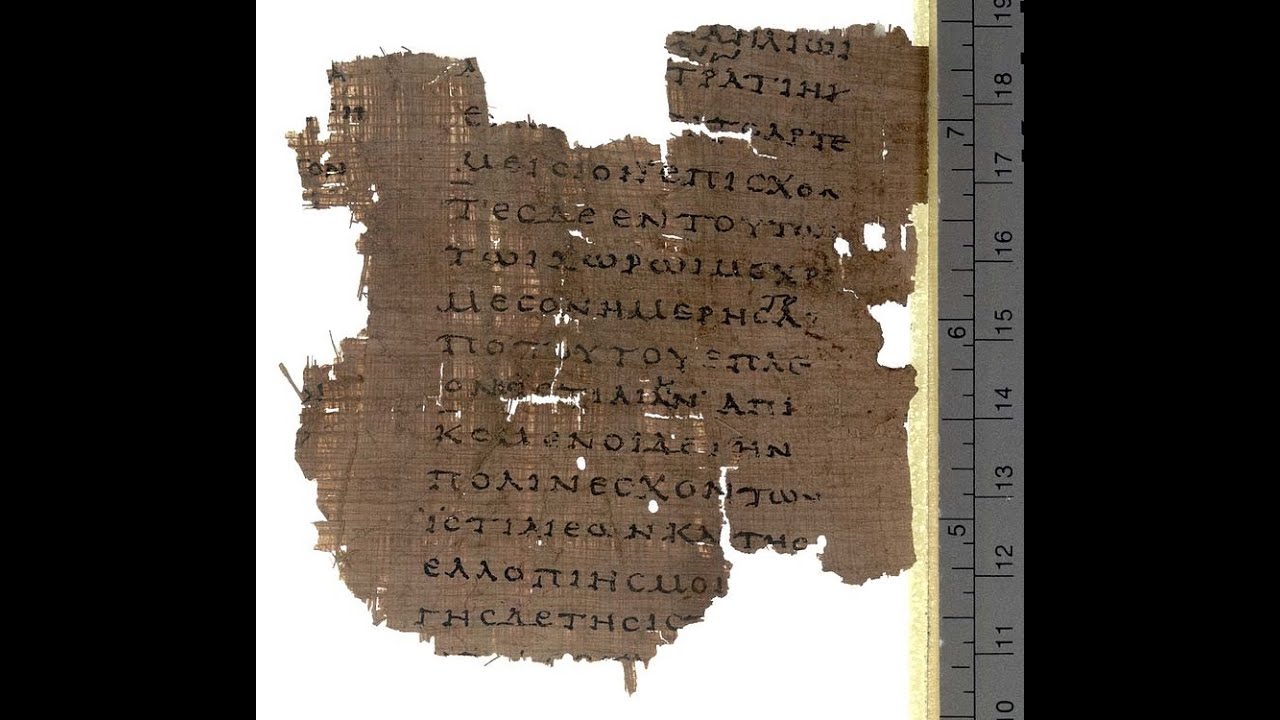 ΑΜΑΗΛΙΩΙ
ΤΡΑΤΙΗΙ
ΤΟΑΡΤΕ
ΜΕΙΣΙΟΝΕΠΙΣΧΟΝ
ΤΕΣΔΕΕΝΤΟΥΤΩΙ
ΤΩΙΧΩΡΩΙΜΕΧΡΙ
ΜΕΣΟΝΗΜΕΡΗΣ
ΠΟΤΟΥΤΟΥΕΠΛΕ
ΟΝΕΣΙΣΤΙΑΙΑΝΑΠΙ
ΚΟΜΕΝΟΙΔΕΤΗΝ
ΠΟΛΙΝΕΣΧΟΝΤΩΝ
ΪΣΤΙΑΙΕΩΝΚΑΙΤΗΣ
ΕΛΛΟΠΙΗΣΜΟΙ
ΓΗΣΔΕΤΗΣΙΣ
19
18
7
17
16
6
15
14
13
5
12
11
10